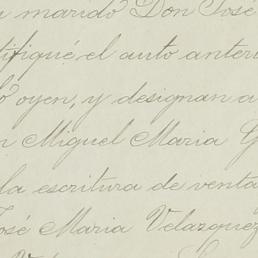 marido Don José
tifiqué el auto anteri
oyen, y designan a
n Miguel Maria G
la escritura de venta
José Maria Velazquez